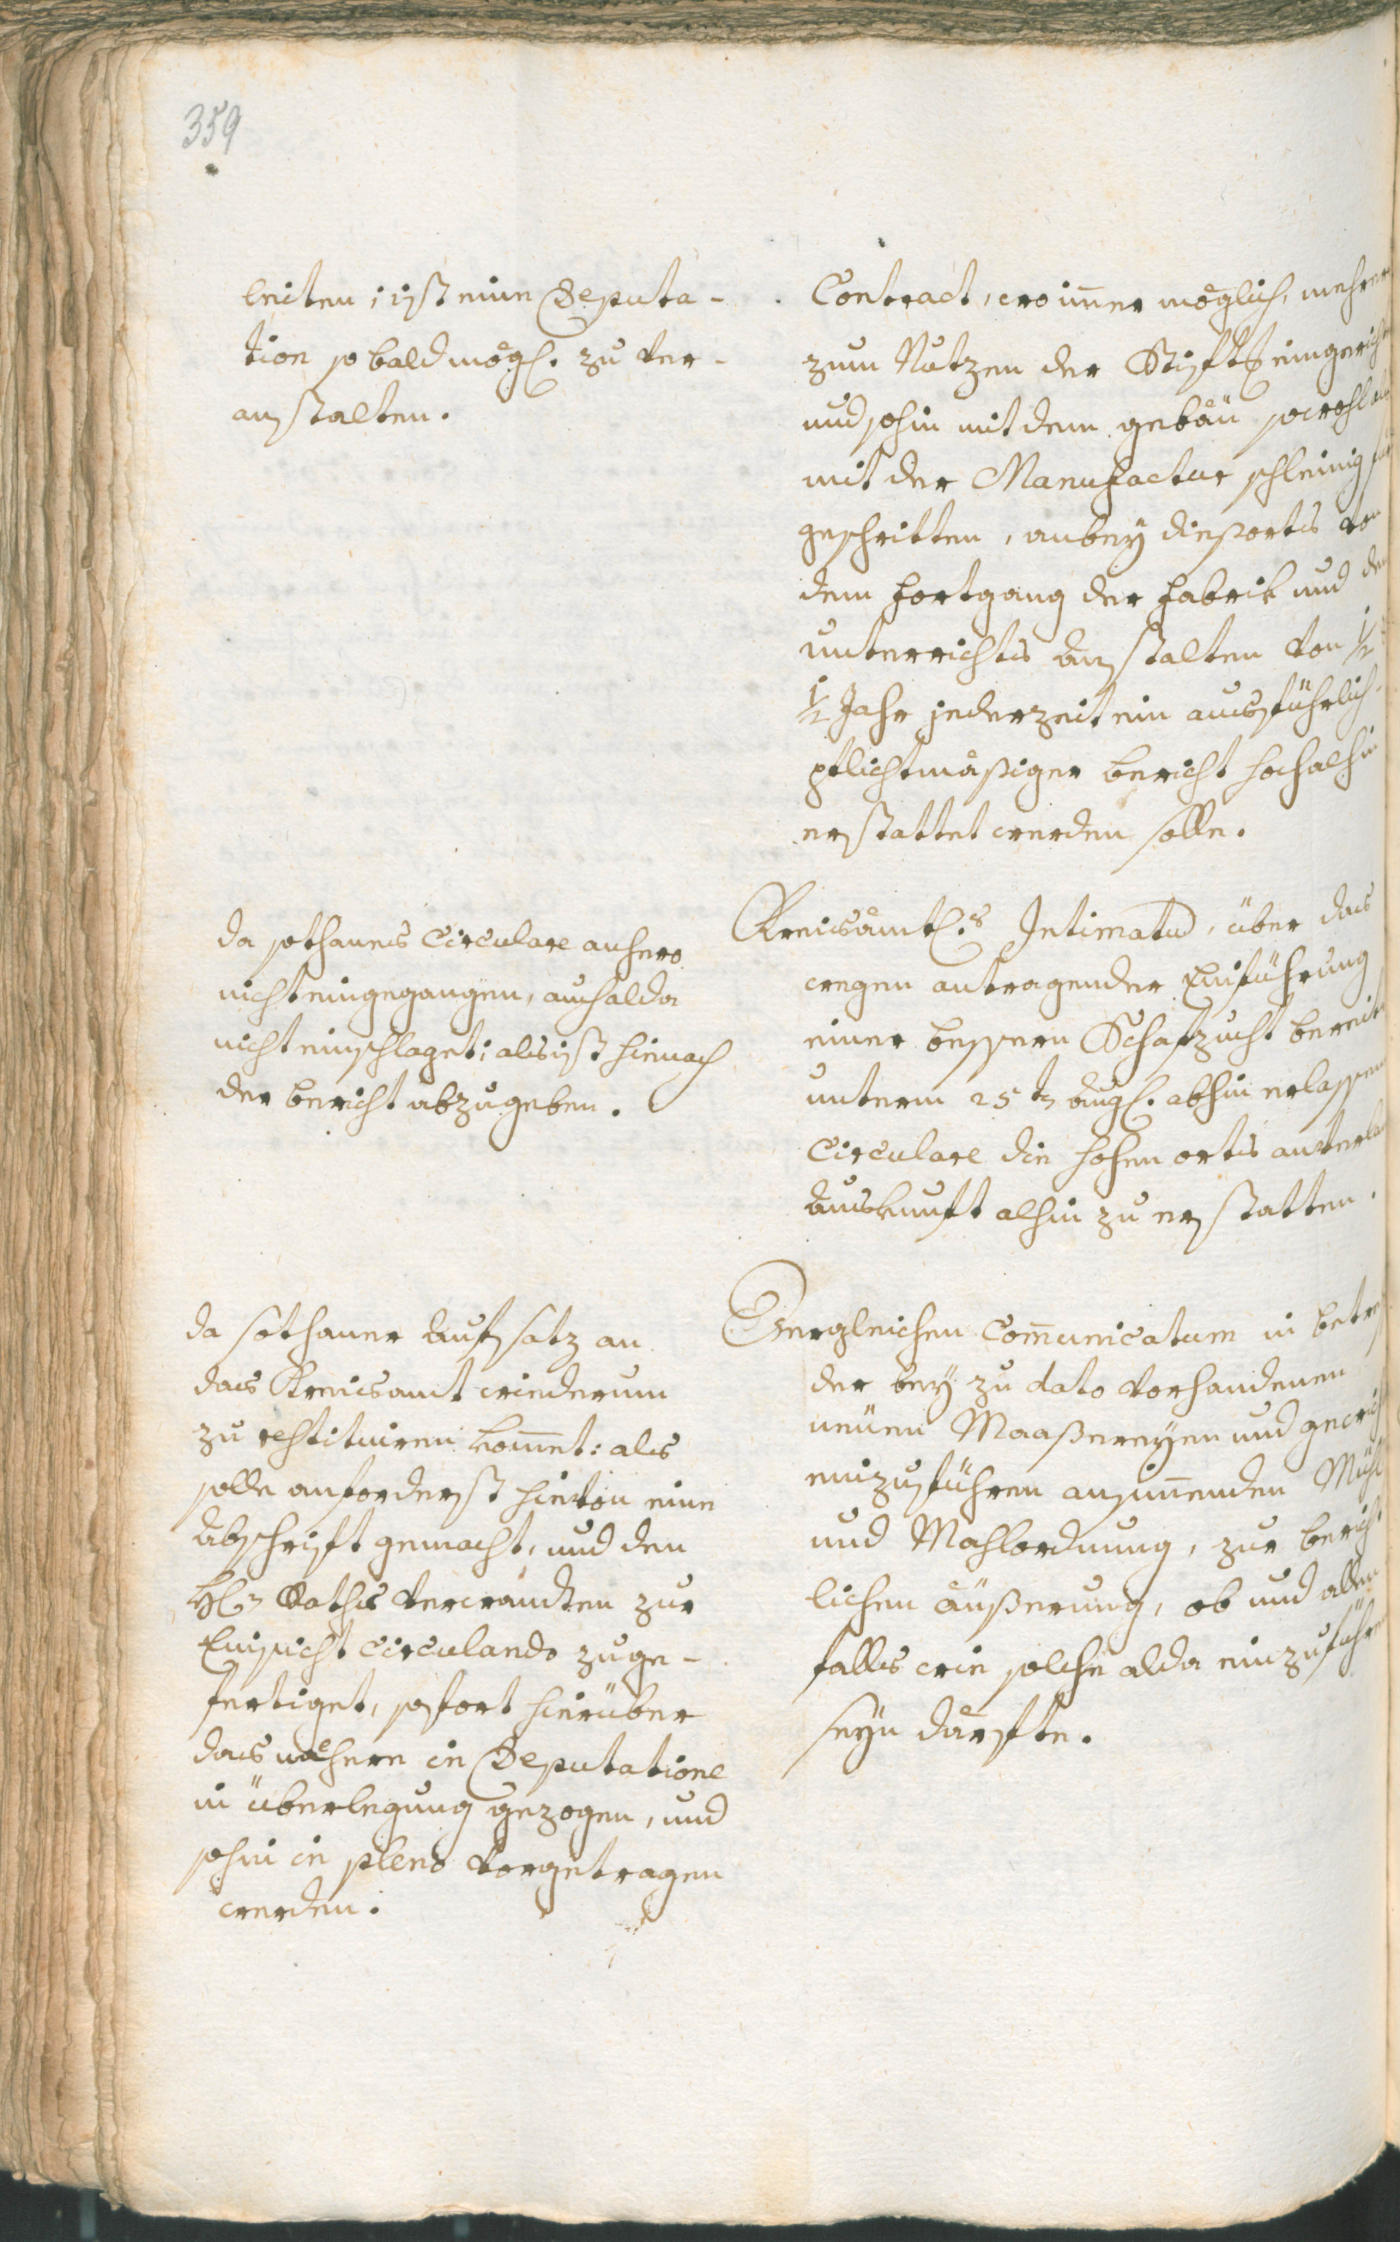 359
leiten; ist eine Deputa-
tion so bald mögl. zu ver-
anstalten.
Contract, wo im̄er möglich, mehrer
zum Nutzen der Stifts eingericht
und sohin mit dem gebäu sowohl als
mit der Manufactur schleinig für
geschritten, anbey dießorts von
dem fortgang der fabrik und den
unterrichts Anstalten von 1/2
1/2 Jahr jederzeit ein ausführlich-
pflichtmäßiger bericht hochalhin
erstattet werden solle.
da sothannes Circulare anhero
nicht eingegangen, auch alda
nicht einschlaget; als ist hienach
der bericht abzugeben.
Kreisämtl.s Intimatum, über das
wegen antragender Einführung
einer bessern Schafzucht bereits
unterm 25t. Aug. abhin erlassene
Circulare die hohen orts anverla
Auskunft alhin zu erstatten.
da sothaner Aufsatz an
das Kreisamt wiederum
zu restituiren kom̄et: als
solle anforderst hievon eine
Abschrift gemacht, und den
H. Raths Verwandten zur
Einsicht circulando zuge-
fertiget, sofort hierüber
das nähere in Deputatione
in überlegung gezogen, und
sohin in pleno vorgetragen
werden.
Dergleichen Com̄unicatum in betref
der bey zu dato vorhandenen
neüen Maaßereyen und gewich
einzuführen ansinnenden Mühl
und Mahlordnung, zur bericht
lichen äußerung, ob und allen
falls wie solche alda einzuführen
seyn därfte.